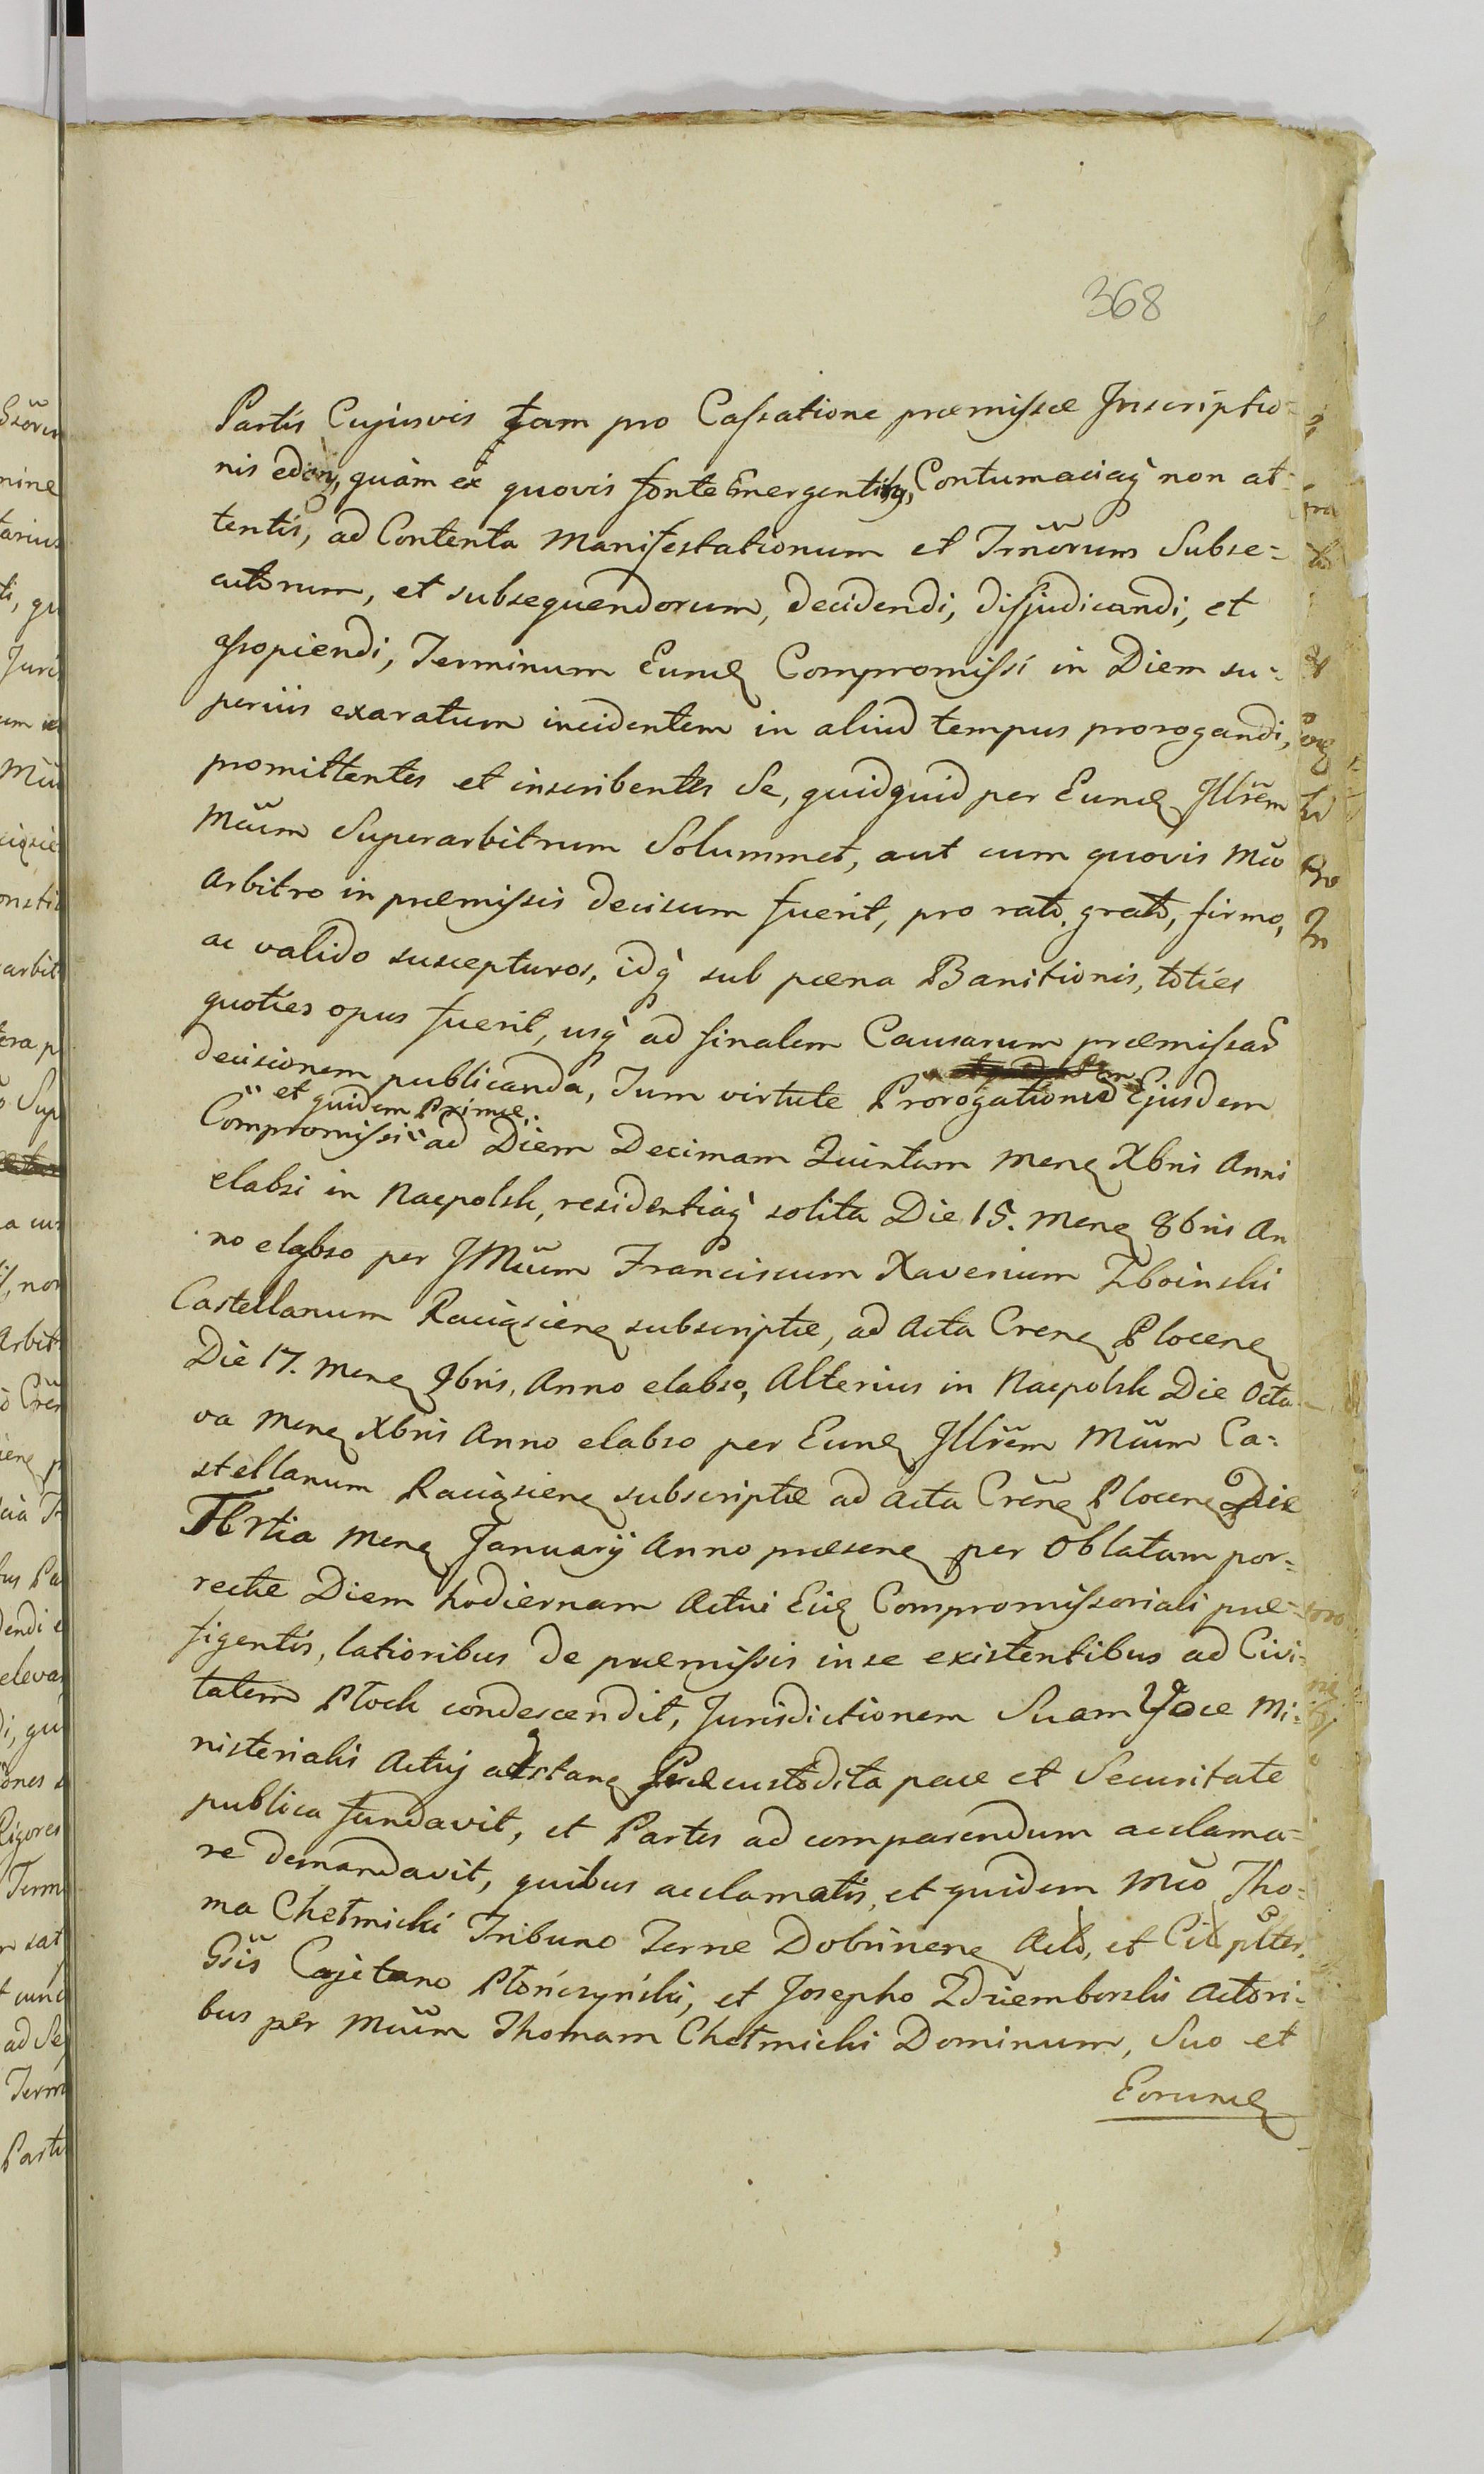 368
Partis Cujusvis tam pro Cassatione præmissæ Inscriptio=
nis edoñ, quàm ex quovis fonte Emergentibus, Contumaciaq̀ non at=
tentis, ad Contenta Manifestationum et Trm̃orum Subse=
cutorum, et subsequendorum, decidendi, disjudicandi, et
assopiendi, Terminum Eund Compromissi in Diem su=
periùs exaratum incidentem in aliud tempus prorogandi,
promittentes et inscribentes Se, quidquid per Eund Illrem
Mcum Superarbitrum Solummet, aut cum quovis Mco
Arbitro in præmissis decisum fuerit, pro rato, grato, firmo,
ac valido suscepturos, idq̀ sub pæna Banitionis, toties
quoties opus fuerit, usq̀ ad finalem Causarum præmissar
decisionem publicanda, Tum virtute Prorogationis Ejusdem
et quidem Primæ
Compromissi ad Diem Decimam Quintam Mens Xbris Anni
elabsi in Nacpolsk, residentiaq̀ solita Die 15. Mens 8bris An
no elabso per JMcum Franciscum Xaverium Zboinski
Castellanum Raciąziens subscriptæ, ad Acta Crens Plocens
Die 17. Mens 9bris, Anno elabso, Alterius in Nacpolsk Die Octa
va Mens Xbris Anno elabso per Eund Illrem Mcum Ca=
stellanum Raciąziens subscriptæ ad Acta Crens Plocens Die
Tertia Mens Januarij Anno præsens per Oblatam por=
rectæ Diem hodiernam Actui Eid Compromissoriali præ=
figentis, latioribus de præmissis in se existentibus ad Civi=
tatem Płock condescendit, Jurisdictionem Suam Voce Mi=
nisterialis Actuj adstans Præcustodita pace et Securitate
publica fundavit, et Partes ad comparendum acclama=
re demandavit, quibus acclamatis, et quidem Mco Tho=
ma Chełmicki Tribuno Terræ Dobrinens Acto, et Cit plter,
Gsis Cajetano Płończyński, et Josepho Zdziemborski Actori=
bus per Mcum Thomam Chełmicki Dominum, Suo et
Eorund